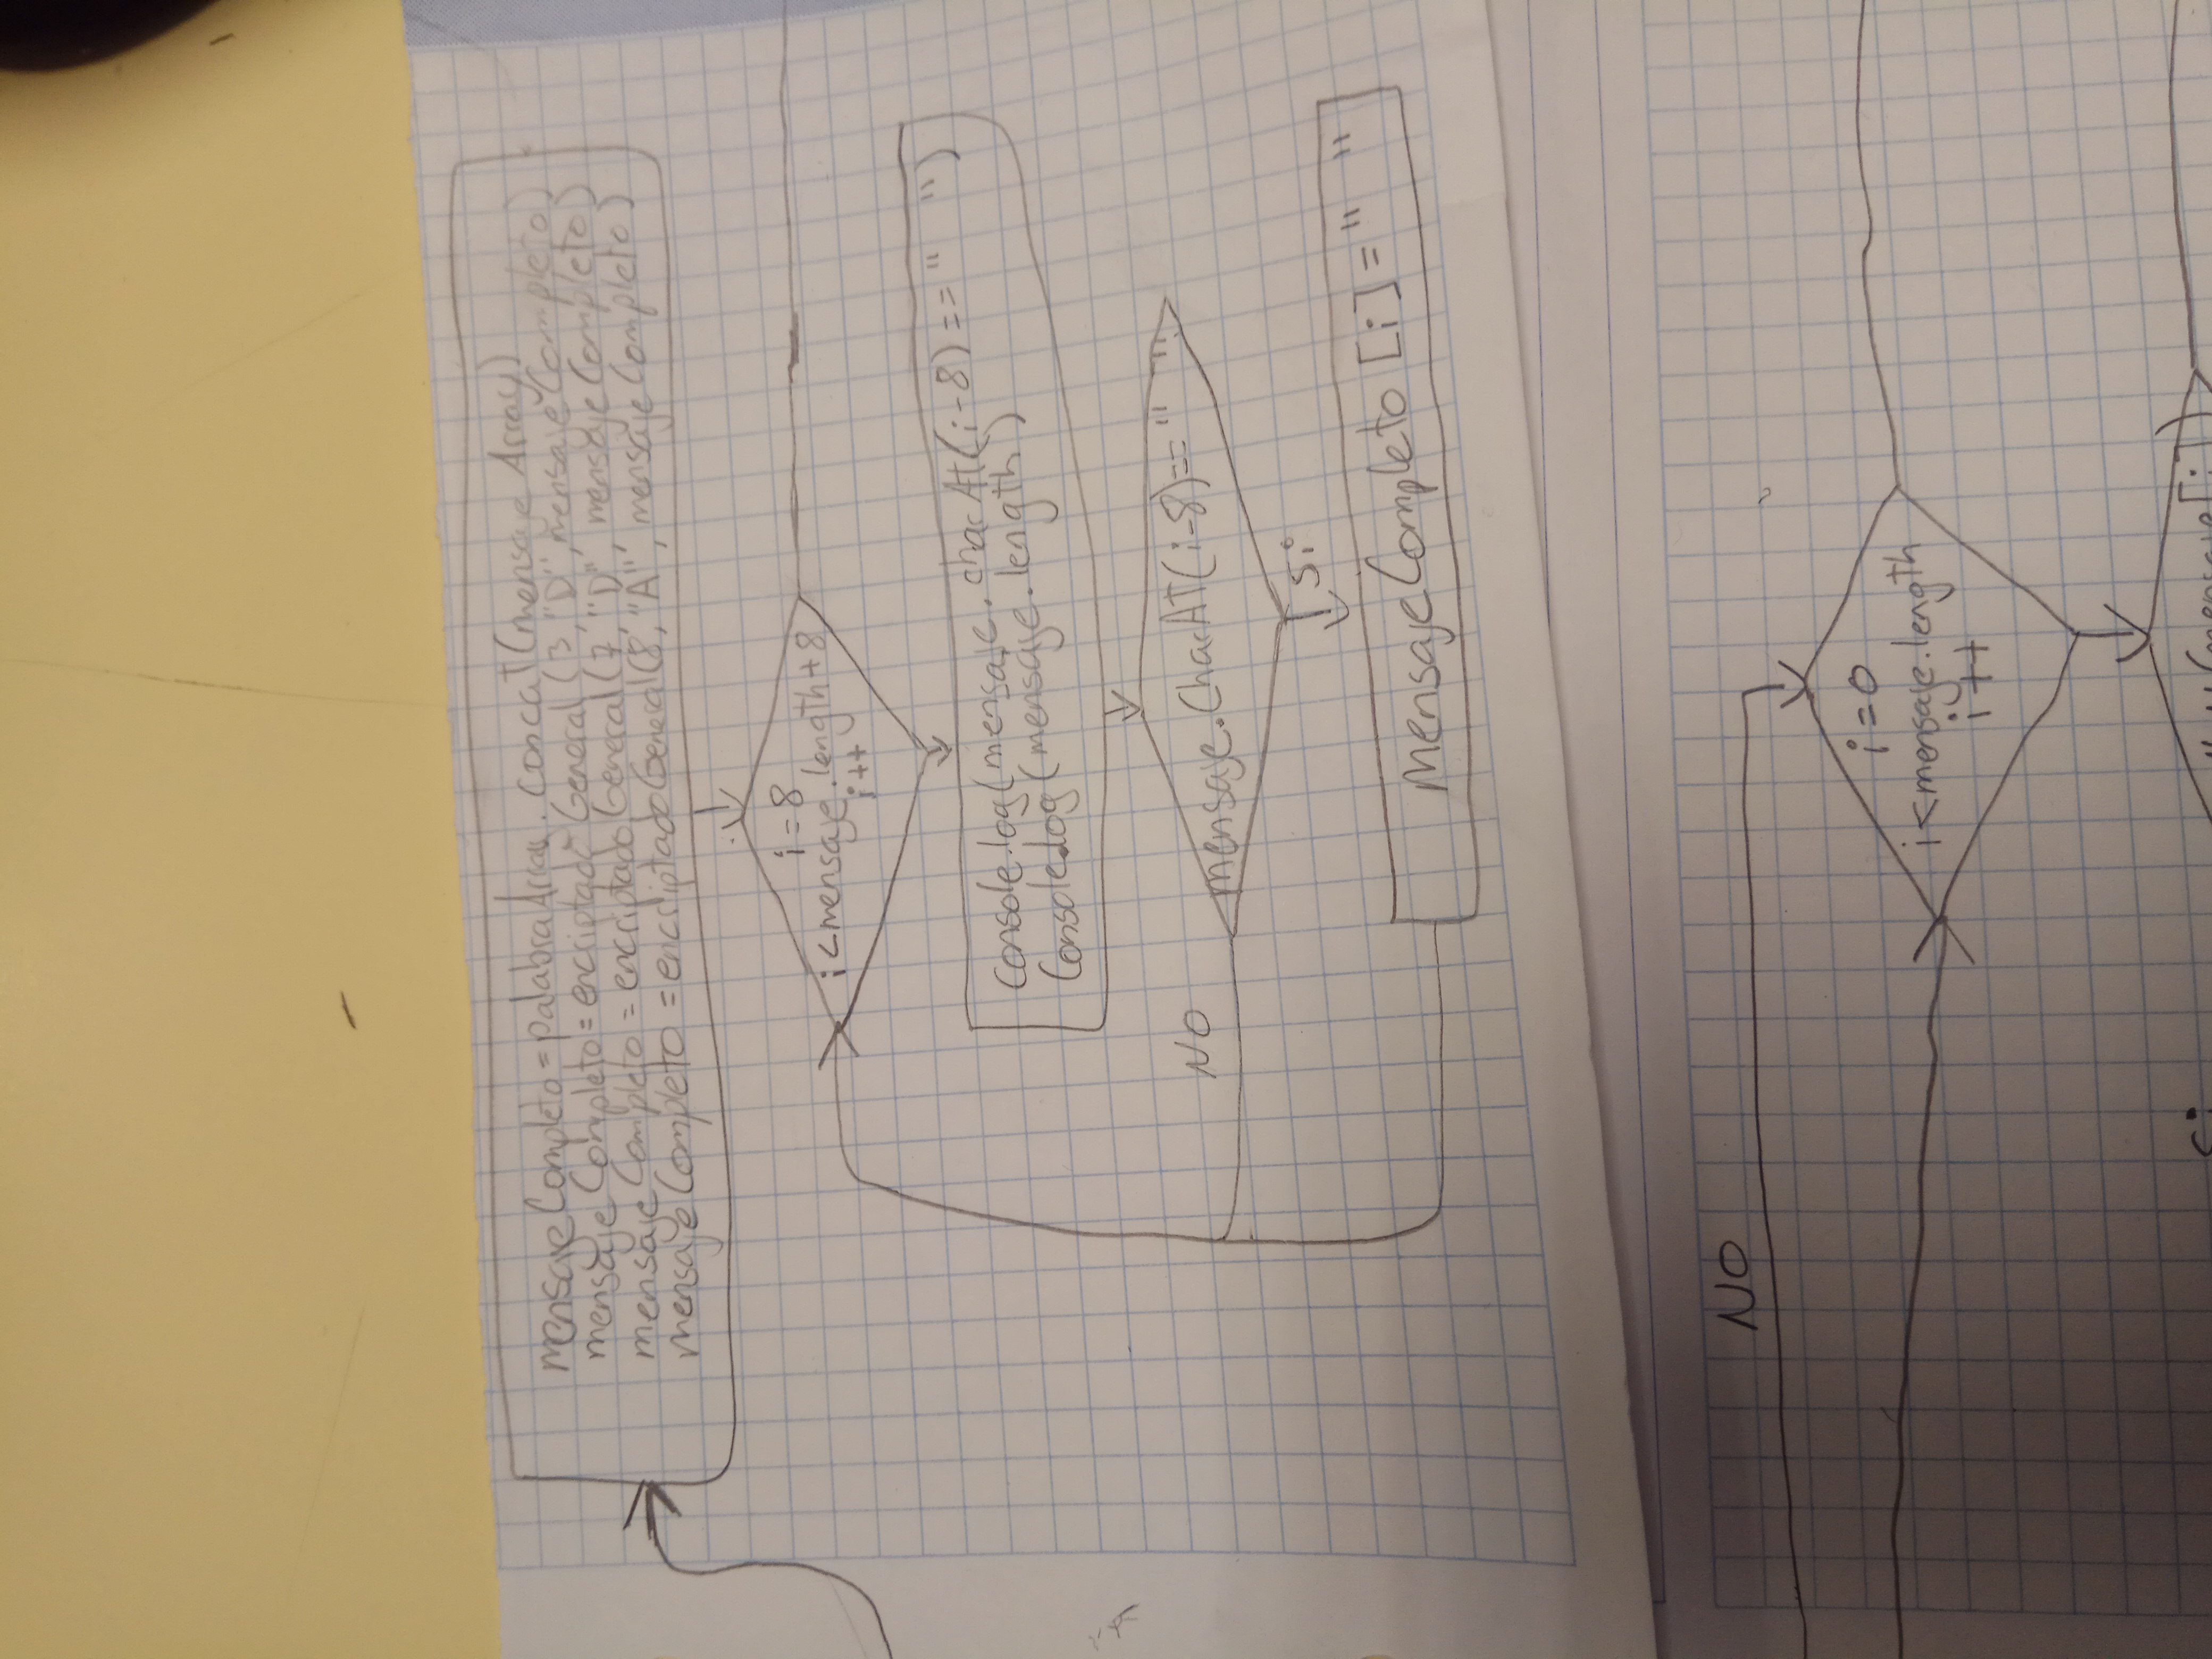 mensaje Completo = palabraArray.concat(mensaje Array)
mensaje Completo = encriptado General (3,"D", mensaje Completo)
mensaje Completo = encriptado General (7,"D", mensaje Completo)
mensaje Completo = encriptado General (8,"A", mensaje Completo)
i=8
i<mensaje.length+8
i++
Console.log(mensaje.charAt(i-8)==" ")
Console.log(mensaje.length)
mensaje.CharAT(i-8)==" "
NO
Si
mensaje Completo [i]=" "
NO
i=0
i<mensaje.length
i++